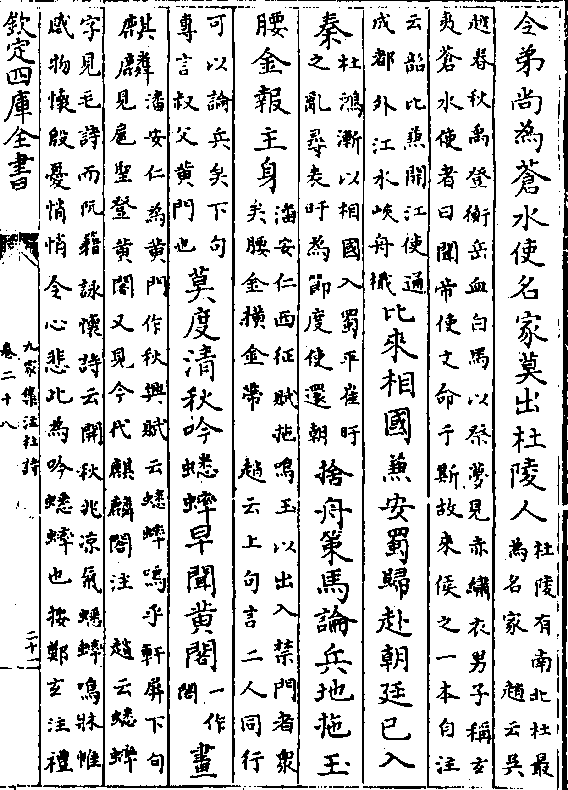 令弟尚為蒼水使名家莫出杜陵人
杜陵有南北杜最
為名家　趙云吳
越春秋禹登衡岳血白馬以祭夢見赤繡衣男子稱玄
夷蒼水使者曰聞帝使文命于斯故來俟之一本自注
云韶比蒹開江使通
成都外江水峽舟檝
比來相國蒹安蜀歸赴朝廷已入
秦
杜鴻漸以相國入蜀平崔旰
之亂尋表旰為節度使還朝
捨舟策馬論兵地拖玉
腰金報主身
潘安仁西征賦拖鳴玉以出入禁門者衆
矣腰金橫金帶　趙云上句言二人同行
可以論兵矣下句
專言叔父黄門也
莫度清秋吟蟋蟀早聞黄閣
一作
閤
畫
麒麟
潘安仁為黄門作秋興賦云蟋蟀鳴乎軒屏下句
見扈聖登黄閣又見今代麒麟閣注　趙云蟋蟀
字見毛詩而阮籍詠懷詩云開秋兆涼氣蟋蟀鳴牀帷
感物懷殷憂悄悄令心悲此為吟蟋蟀也按鄭玄注禮
欽定四庫全書
九家集注杜詩
卷二十八
二十一